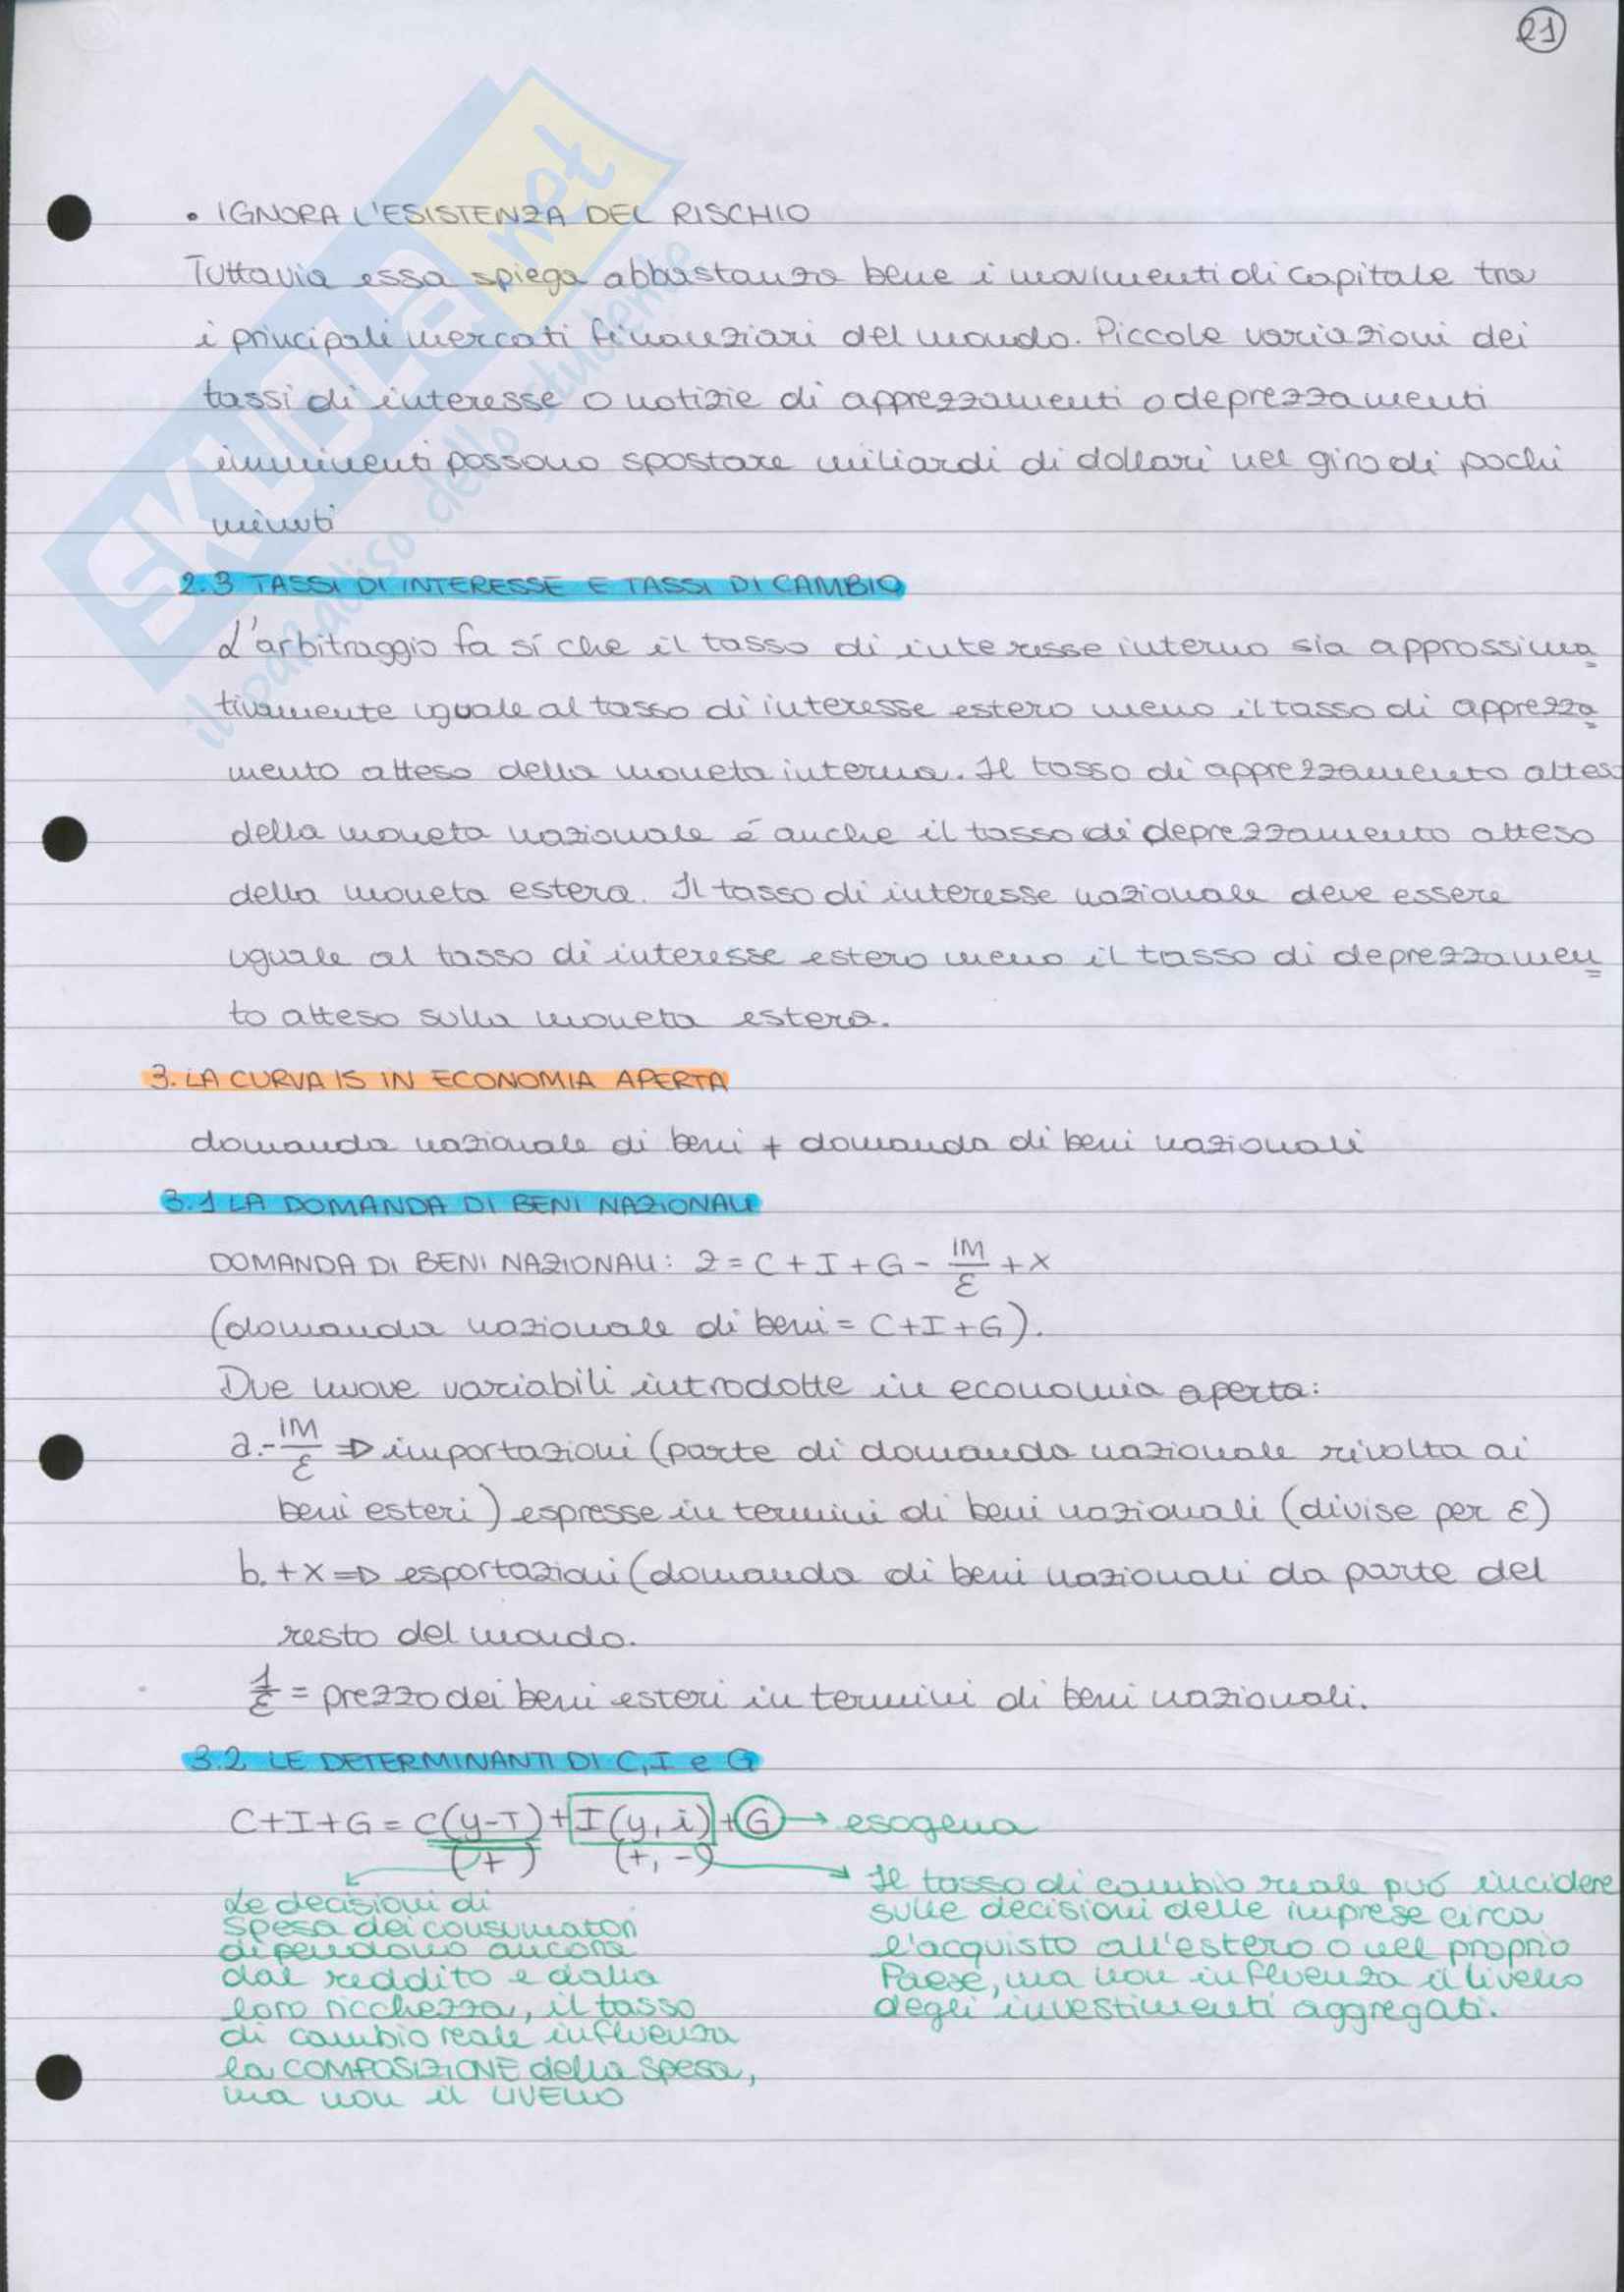 21
• IGNORA L'ESISTENZA DEL RISCHIO
Tuttavia essa spiega abbastanza bene i movimenti di capitale tra
i principali mercati finanziari del mondo. Piccole variazioni dei
tassi di interesse o notizie di apprezzamenti o deprezzamenti
imminenti possono spostare miliardi di dollari nel giro di pochi
minuti
2.3 TASSI DI INTERESSE E TASSI DI CAMBIO
L'arbitraggio fa sí che il tasso di interesse interno sia approssima
tivamente uguale al tasso di interesse estero meno il tasso di apprezza
mento atteso della moneta interna. Il tasso di apprezzamento atteso
della moneta nazionale é anche il tasso di deprezzamento atteso
della moneta estera. Il tasso di interesse nazionale deve essere
uguale al tasso di interesse estero meno il tasso di deprezzamen
to atteso sulla moneta estera.
3. LA CURVA IS IN ECONOMIA APERTA
domanda nazionale di beni ≠ domanda di beni nazionali
3.1 LA DOMANDA DI BENI NAZIONALI
DOMANDA DI BENI NAZIONALI: Z = C + I + G - IM/ε + X
(domanda nazionale di beni = C+I+G).
Due nuove variabili introdotte in economia aperta:
a. - IM/ε ⇒ importazioni (parte di domanda nazionale rivolta ai
beni esteri) espresse in termini di beni nazionali (divise per ε)
b. + X ⇒ esportazioni (domanda di beni nazionali da parte del
resto del mondo.
1/ε = prezzo dei beni esteri in termini di beni nazionali.
3.2 LE DETERMINANTI DI C, I e G
C+I+G = C(y-T) + I(y, i) + G → esogena
(+) (+, -)
Le decisioni di
spesa dei consumatori
dipendono ancora
dal reddito e dalla
loro ricchezza, il tasso
di cambio reale influenza
la COMPOSIZIONE della spesa,
ma non il LIVELLO
Il tasso di cambio reale puó incidere
sulle decisioni delle imprese circa
l'acquisto all'estero o nel proprio
Paese, ma non influenza il livello
degli investimenti aggregati.
SKUOLA.net
il paradiso dello studente